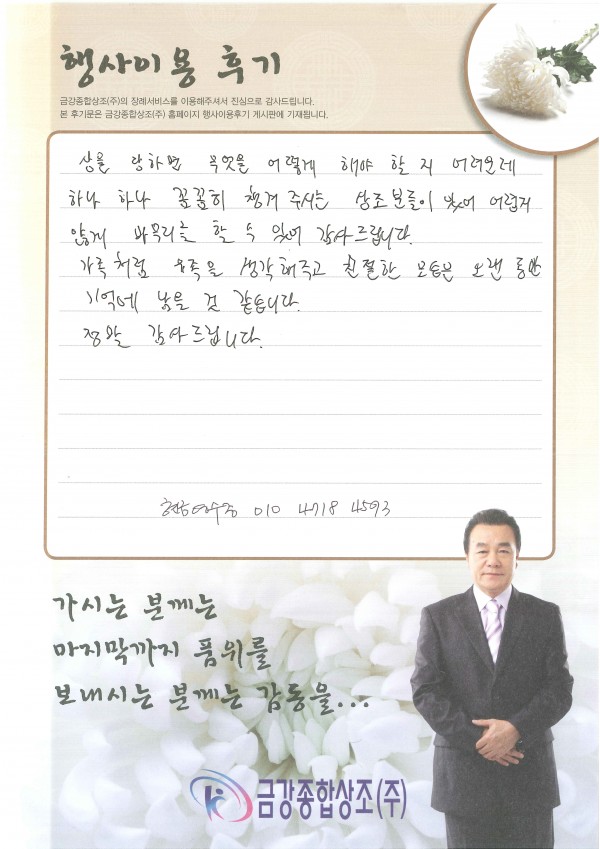 행사이용 후기
금강종합상조(주)의 장례서비스를 이용해주셔서 진심으로 감사드립니다.
본 후기문은 금강종합상조(주) 홈페이지 행사이용후기 게시판에 기재됩니다.
상을 당하면 무엇을 어떻게 해야 할 지 어려운데
하나 하나 꼼꼼히 챙겨 주시는 상조분들이 있어 어렵지
않게 마무리를 할 수 있어 감사드립니다.
가족처럼 유족을 생각해주고 친절한 모습은 오랜 동안
기억에 남을 것 같습니다.
정말 감사드립니다.
010 4718 4593
가시는 분께는
마지막까지 품위를
보내시는 분께는 감동을...
금강종합상조(주)